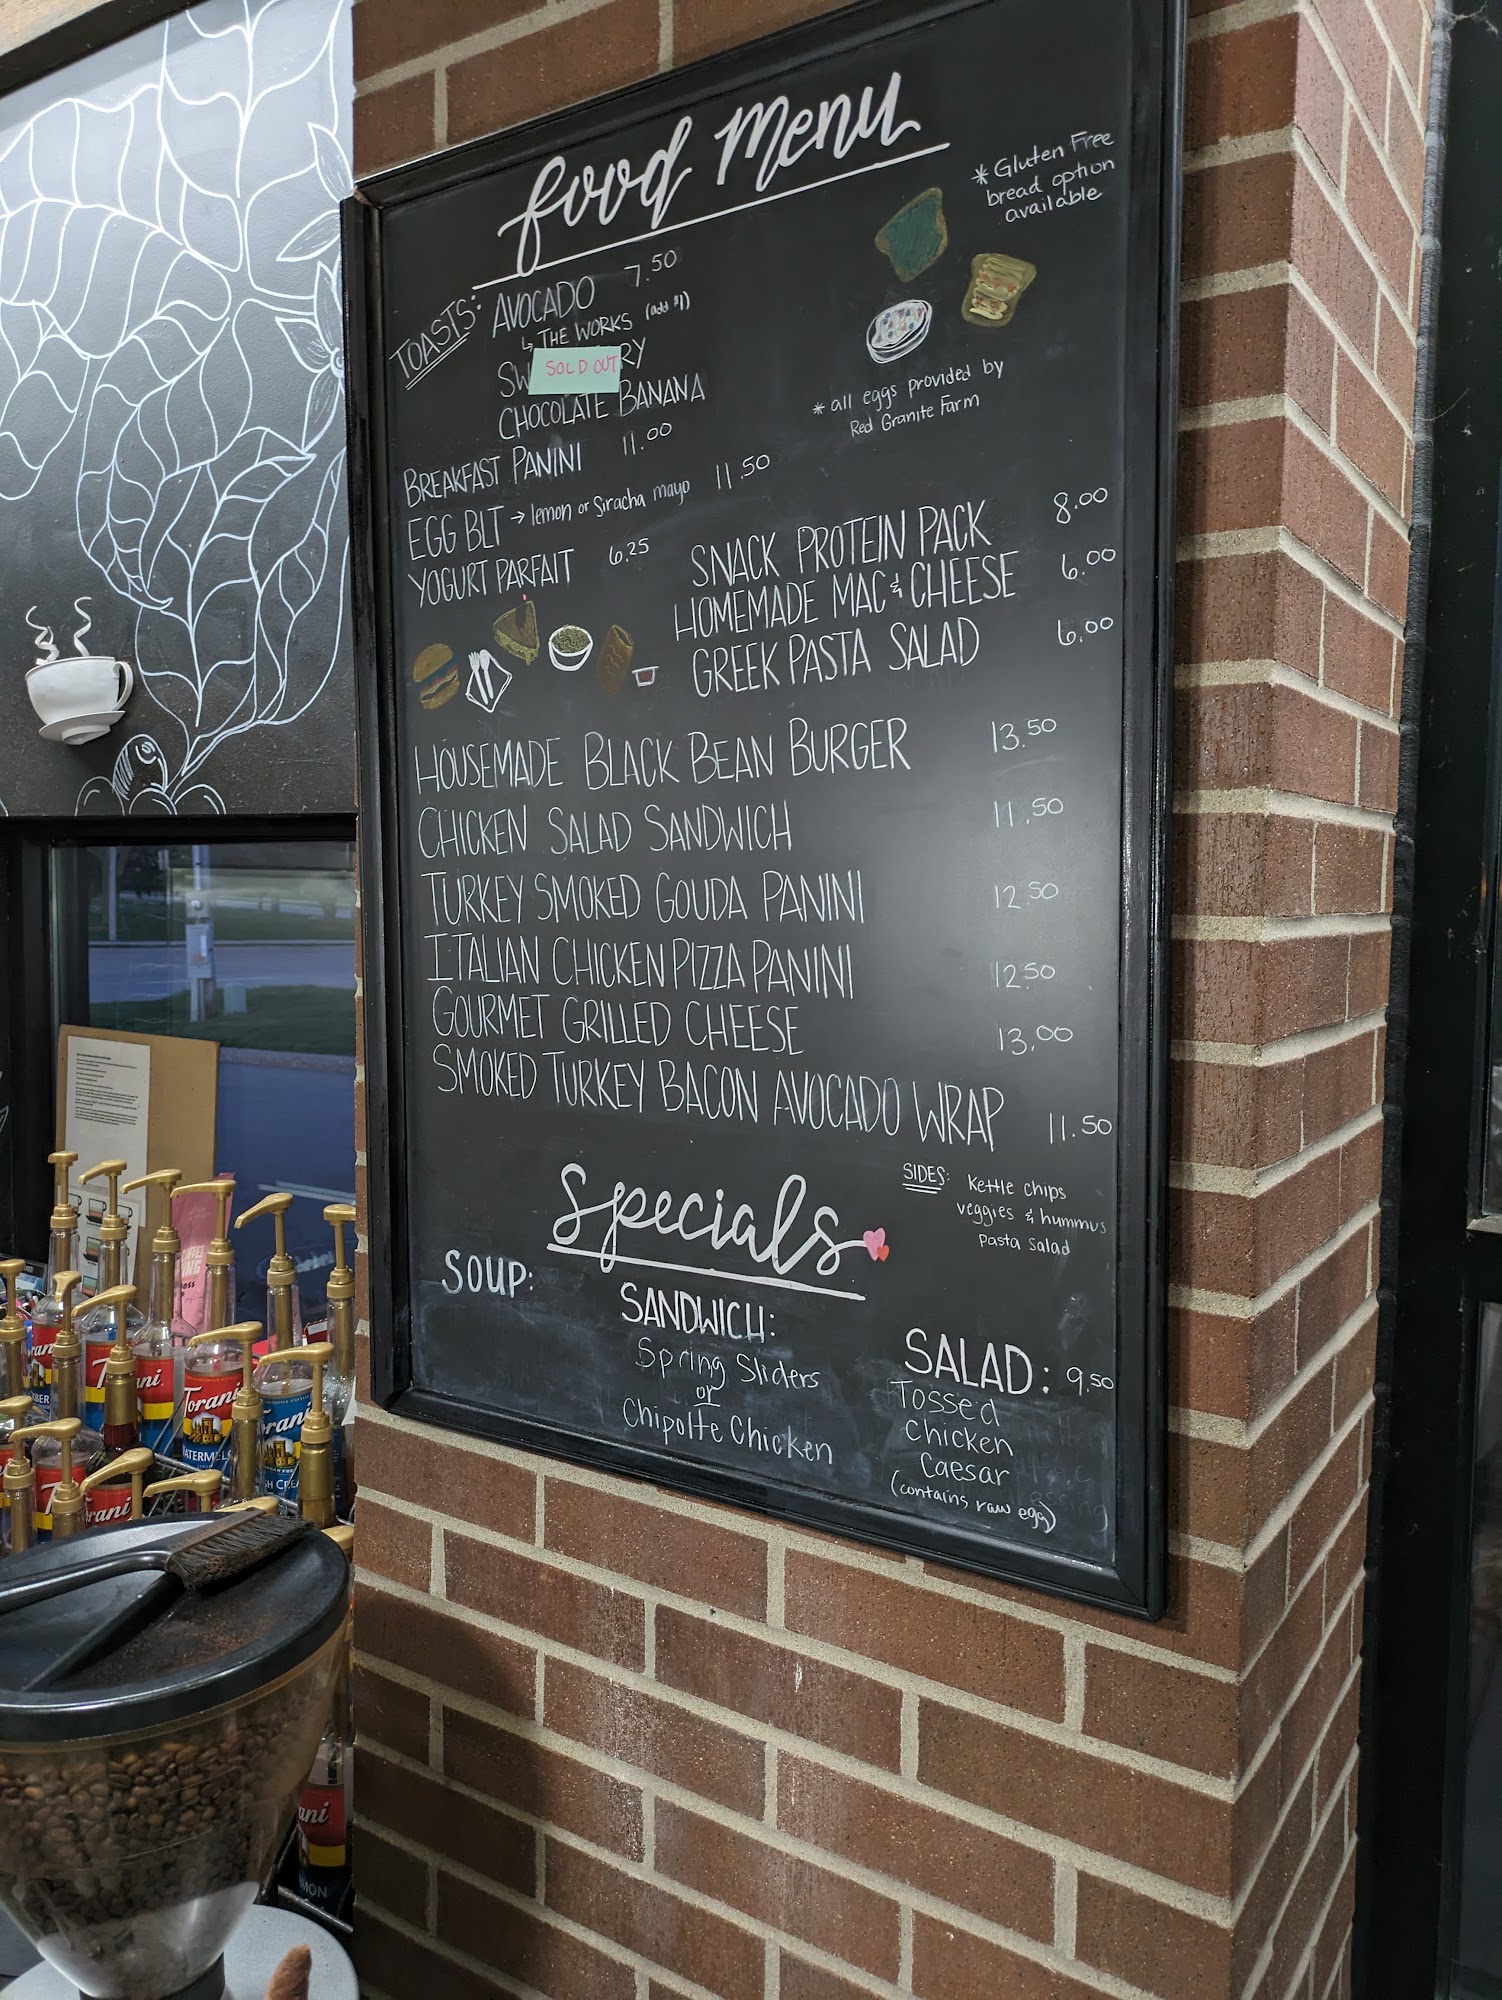 food menu
* Gluten Free
bread option
available
TOASTS: AVOCADO 7.50
↳ THE WORKS (add $1)
SW RY
SOLD OUT
CHOCOLATE BANANA
* all eggs provided by
Red Granite Farm
BREAKFAST PANINI 11.00
EGG BLT → lemon or Siracha mayo 11.50
YOGURT PARFAIT 6.25
SNACK PROTEIN PACK 8.00
HOMEMADE MAC & CHEESE 6.00
GREEK PASTA SALAD 6.00
HOUSEMADE BLACK BEAN BURGER 13.50
CHICKEN SALAD SANDWICH 11.50
TURKEY SMOKED GOUDA PANINI 12.50
ITALIAN CHICKEN PIZZA PANINI 12.50
GOURMET GRILLED CHEESE 13.00
SMOKED TURKEY BACON AVOCADO WRAP 11.50
SIDES: Kettle chips
veggies & hummus
Pasta Salad
Specials
SOUP:
SANDWICH:
Spring Sliders
or
Chipolte Chicken
SALAD: 9.50
Tossed
Chicken
Caesar
(contains raw egg)
Torani
Torani
Torani